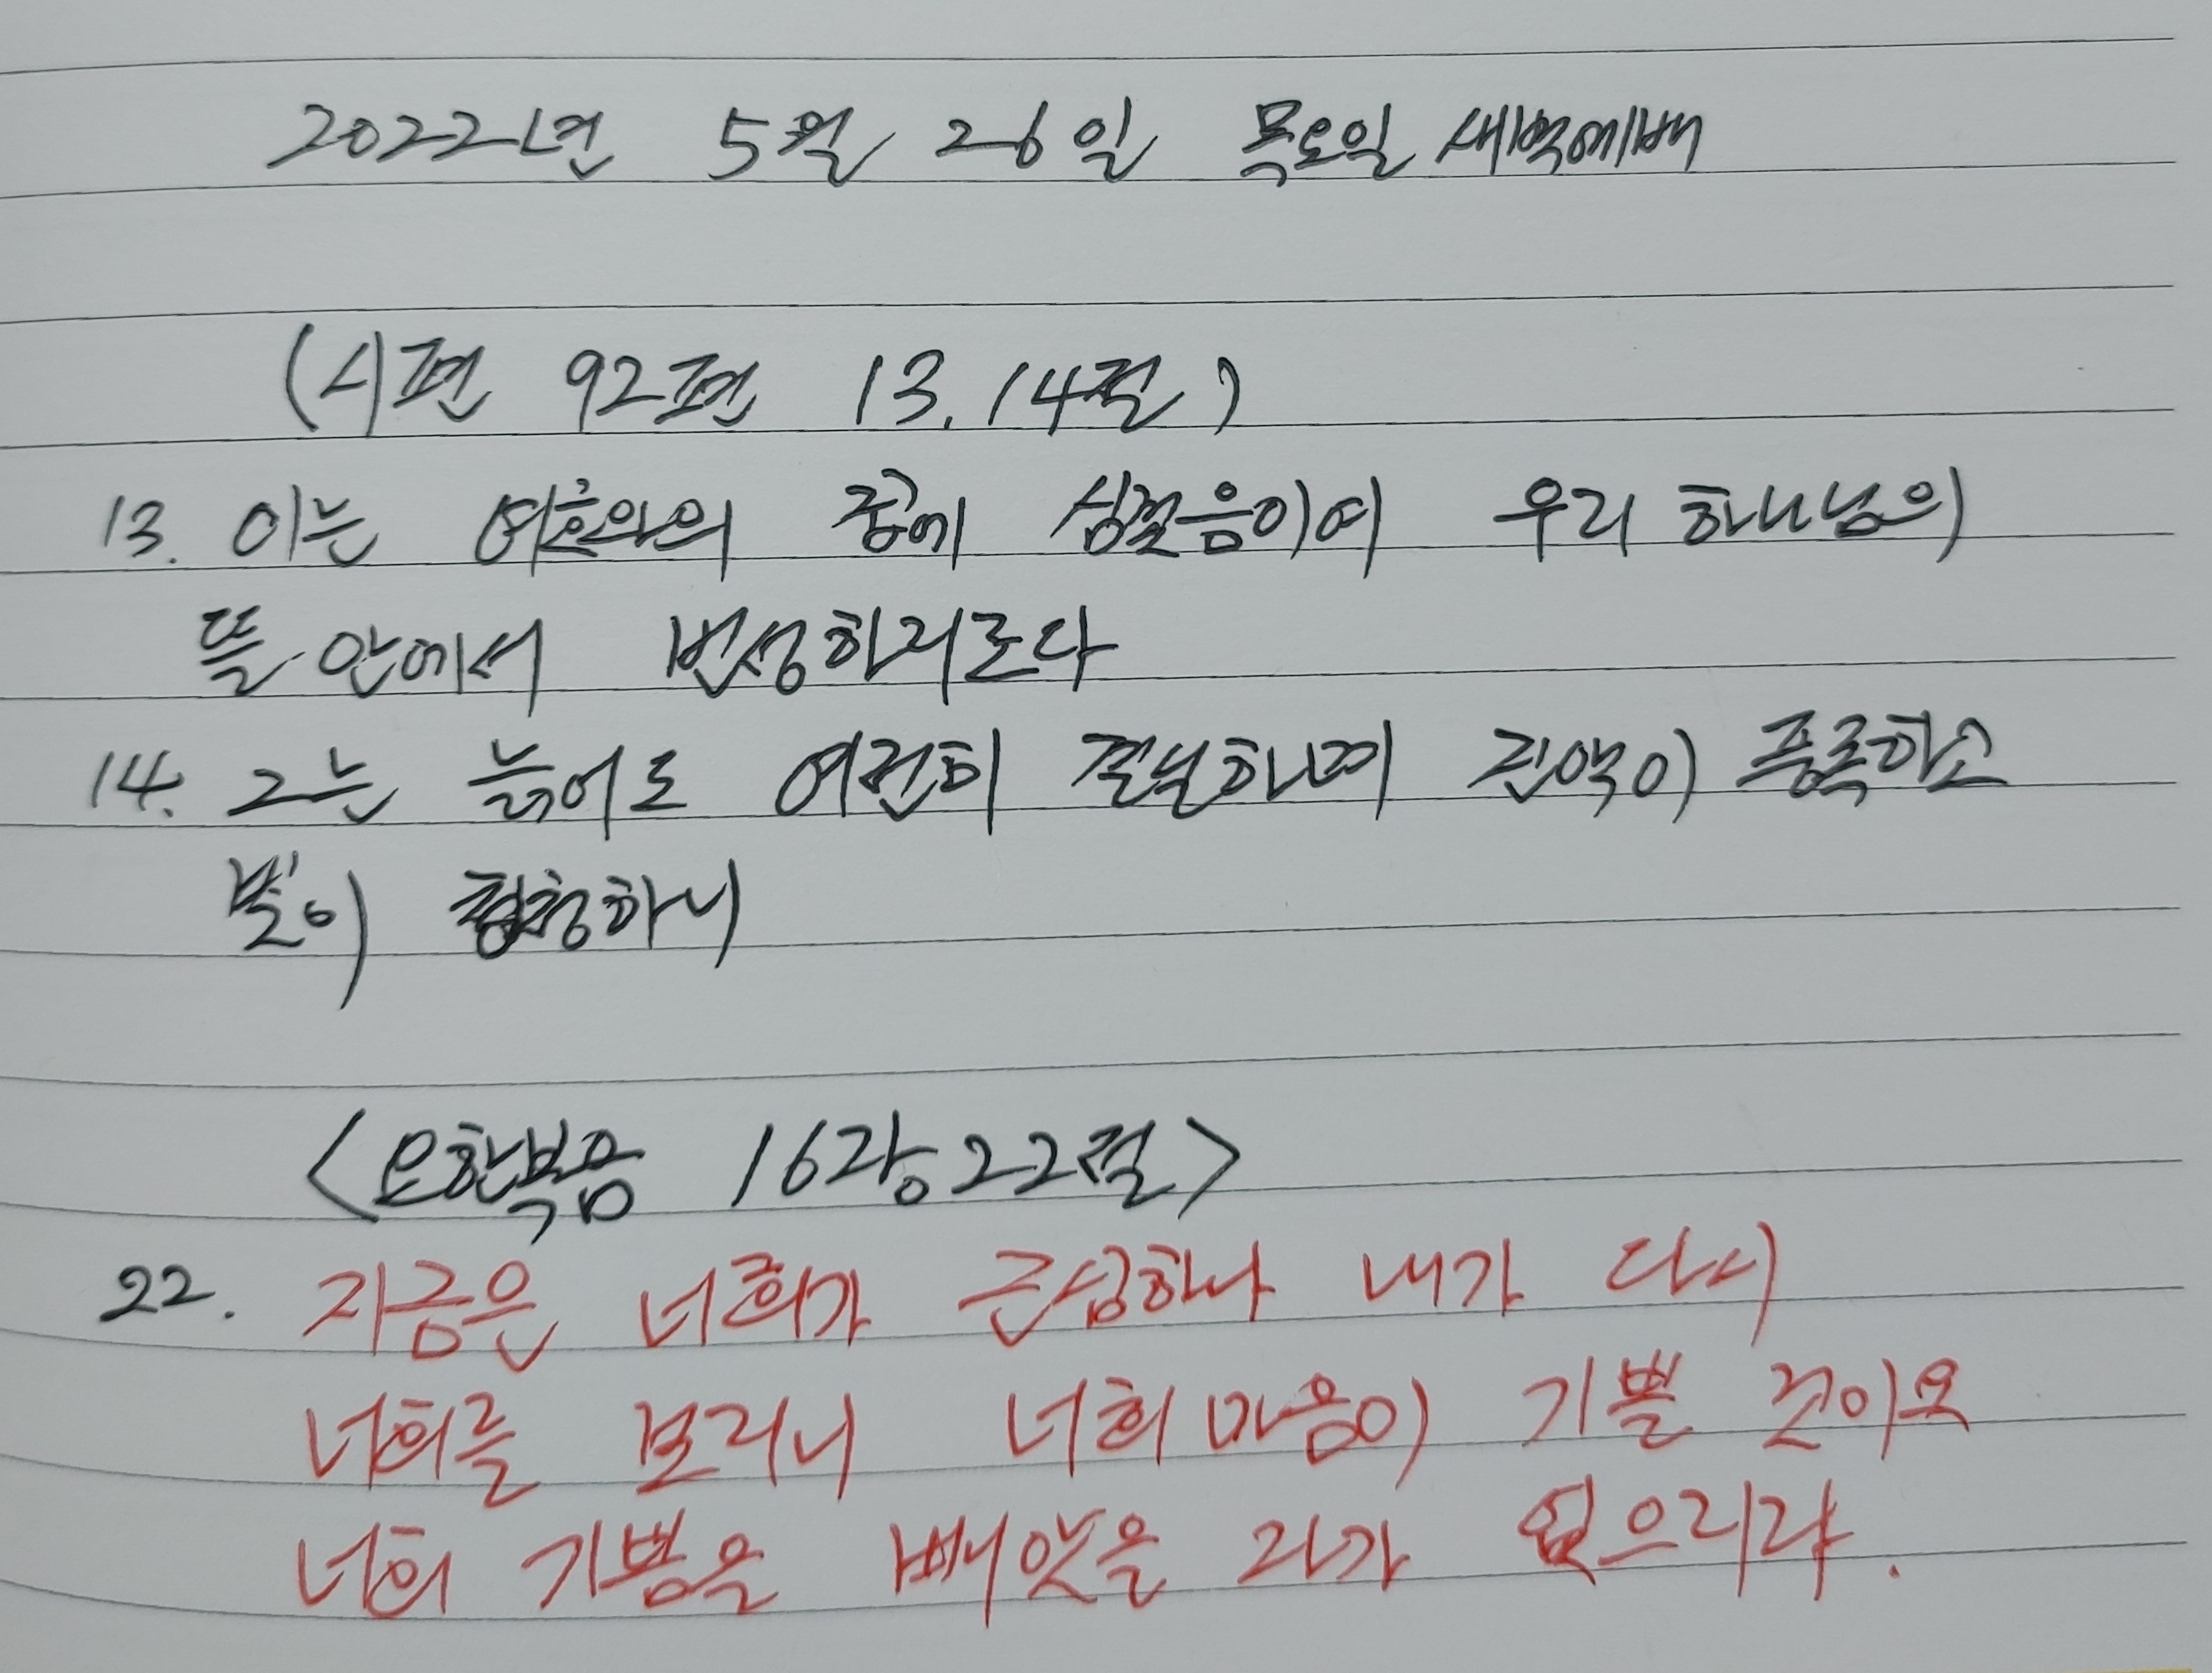 2022년 5월 26일 목요일 새벽예배
(시편 92편 13.14절)
13. 이는 여호와의 중에 심겼음이여 우리 하나님의
뜰 안에서 번성하리로다
14. 그는 늙어도 여전히 결실하며 진액이 풍족하고
빛이 청청하니
<요한복음 16장 22절>
22. 지금은 너희가 근심하나 내가 다시
너희를 보리니 너희 마음이 기쁠 것이요
너희 기쁨을 빼앗을 자가 없으리라.